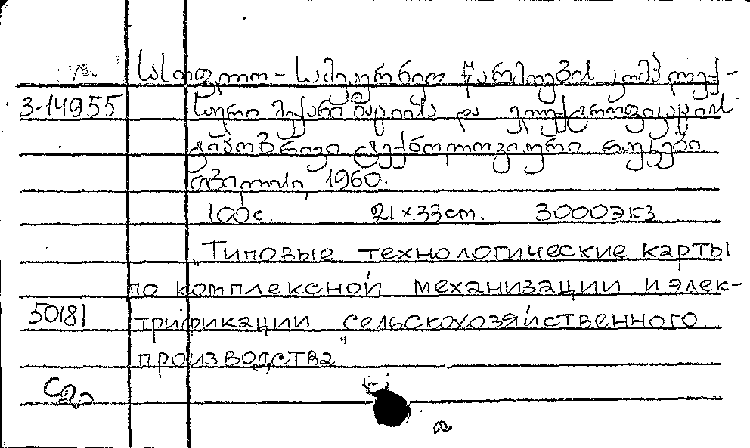 სასოფლო-სამეურნეო წარმოების კომპლექ-
3-14955 სური მექანიზაციისა და ელექტროფიკაციის
ტიპობრივი ტექნოლოგიური რუკები.
თბილისი, 1960.
100с. 21×33cm. 3000экз
"Типовые технологические карты
по комплексной механизации и элек-
50181 трификации сельскохозяйственного
производства"